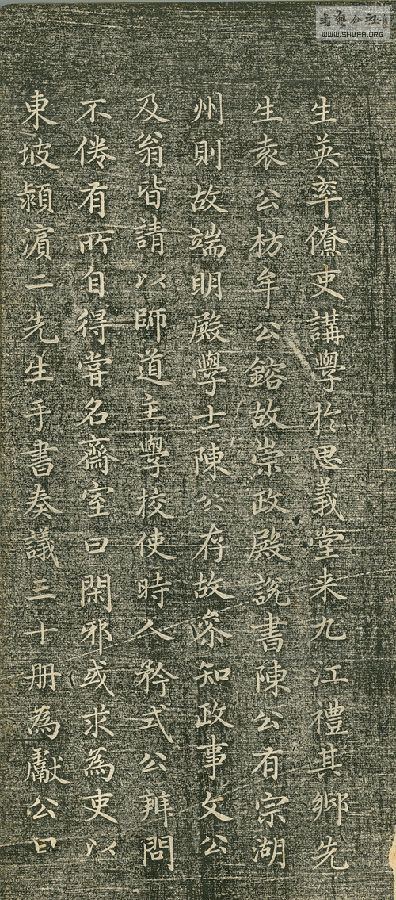 生英率僚吏講學於思義堂来九江禮其鄉先
生袁公枋牟公鎔故崇政殿說書陳公有宗湖
州則故端明殿學士陳公存故叅知政事文公
及翁皆請以師道主學校使時人矜式公辨問
不倦有所自得嘗名齋室曰閑邪或求為吏以
東坡潁濱二先生手書奏議三十册為獻公曰
WWW.SHUFA.ORG